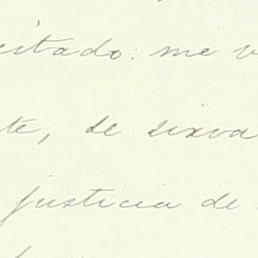 citado: me v
te, se sirva
justicia de